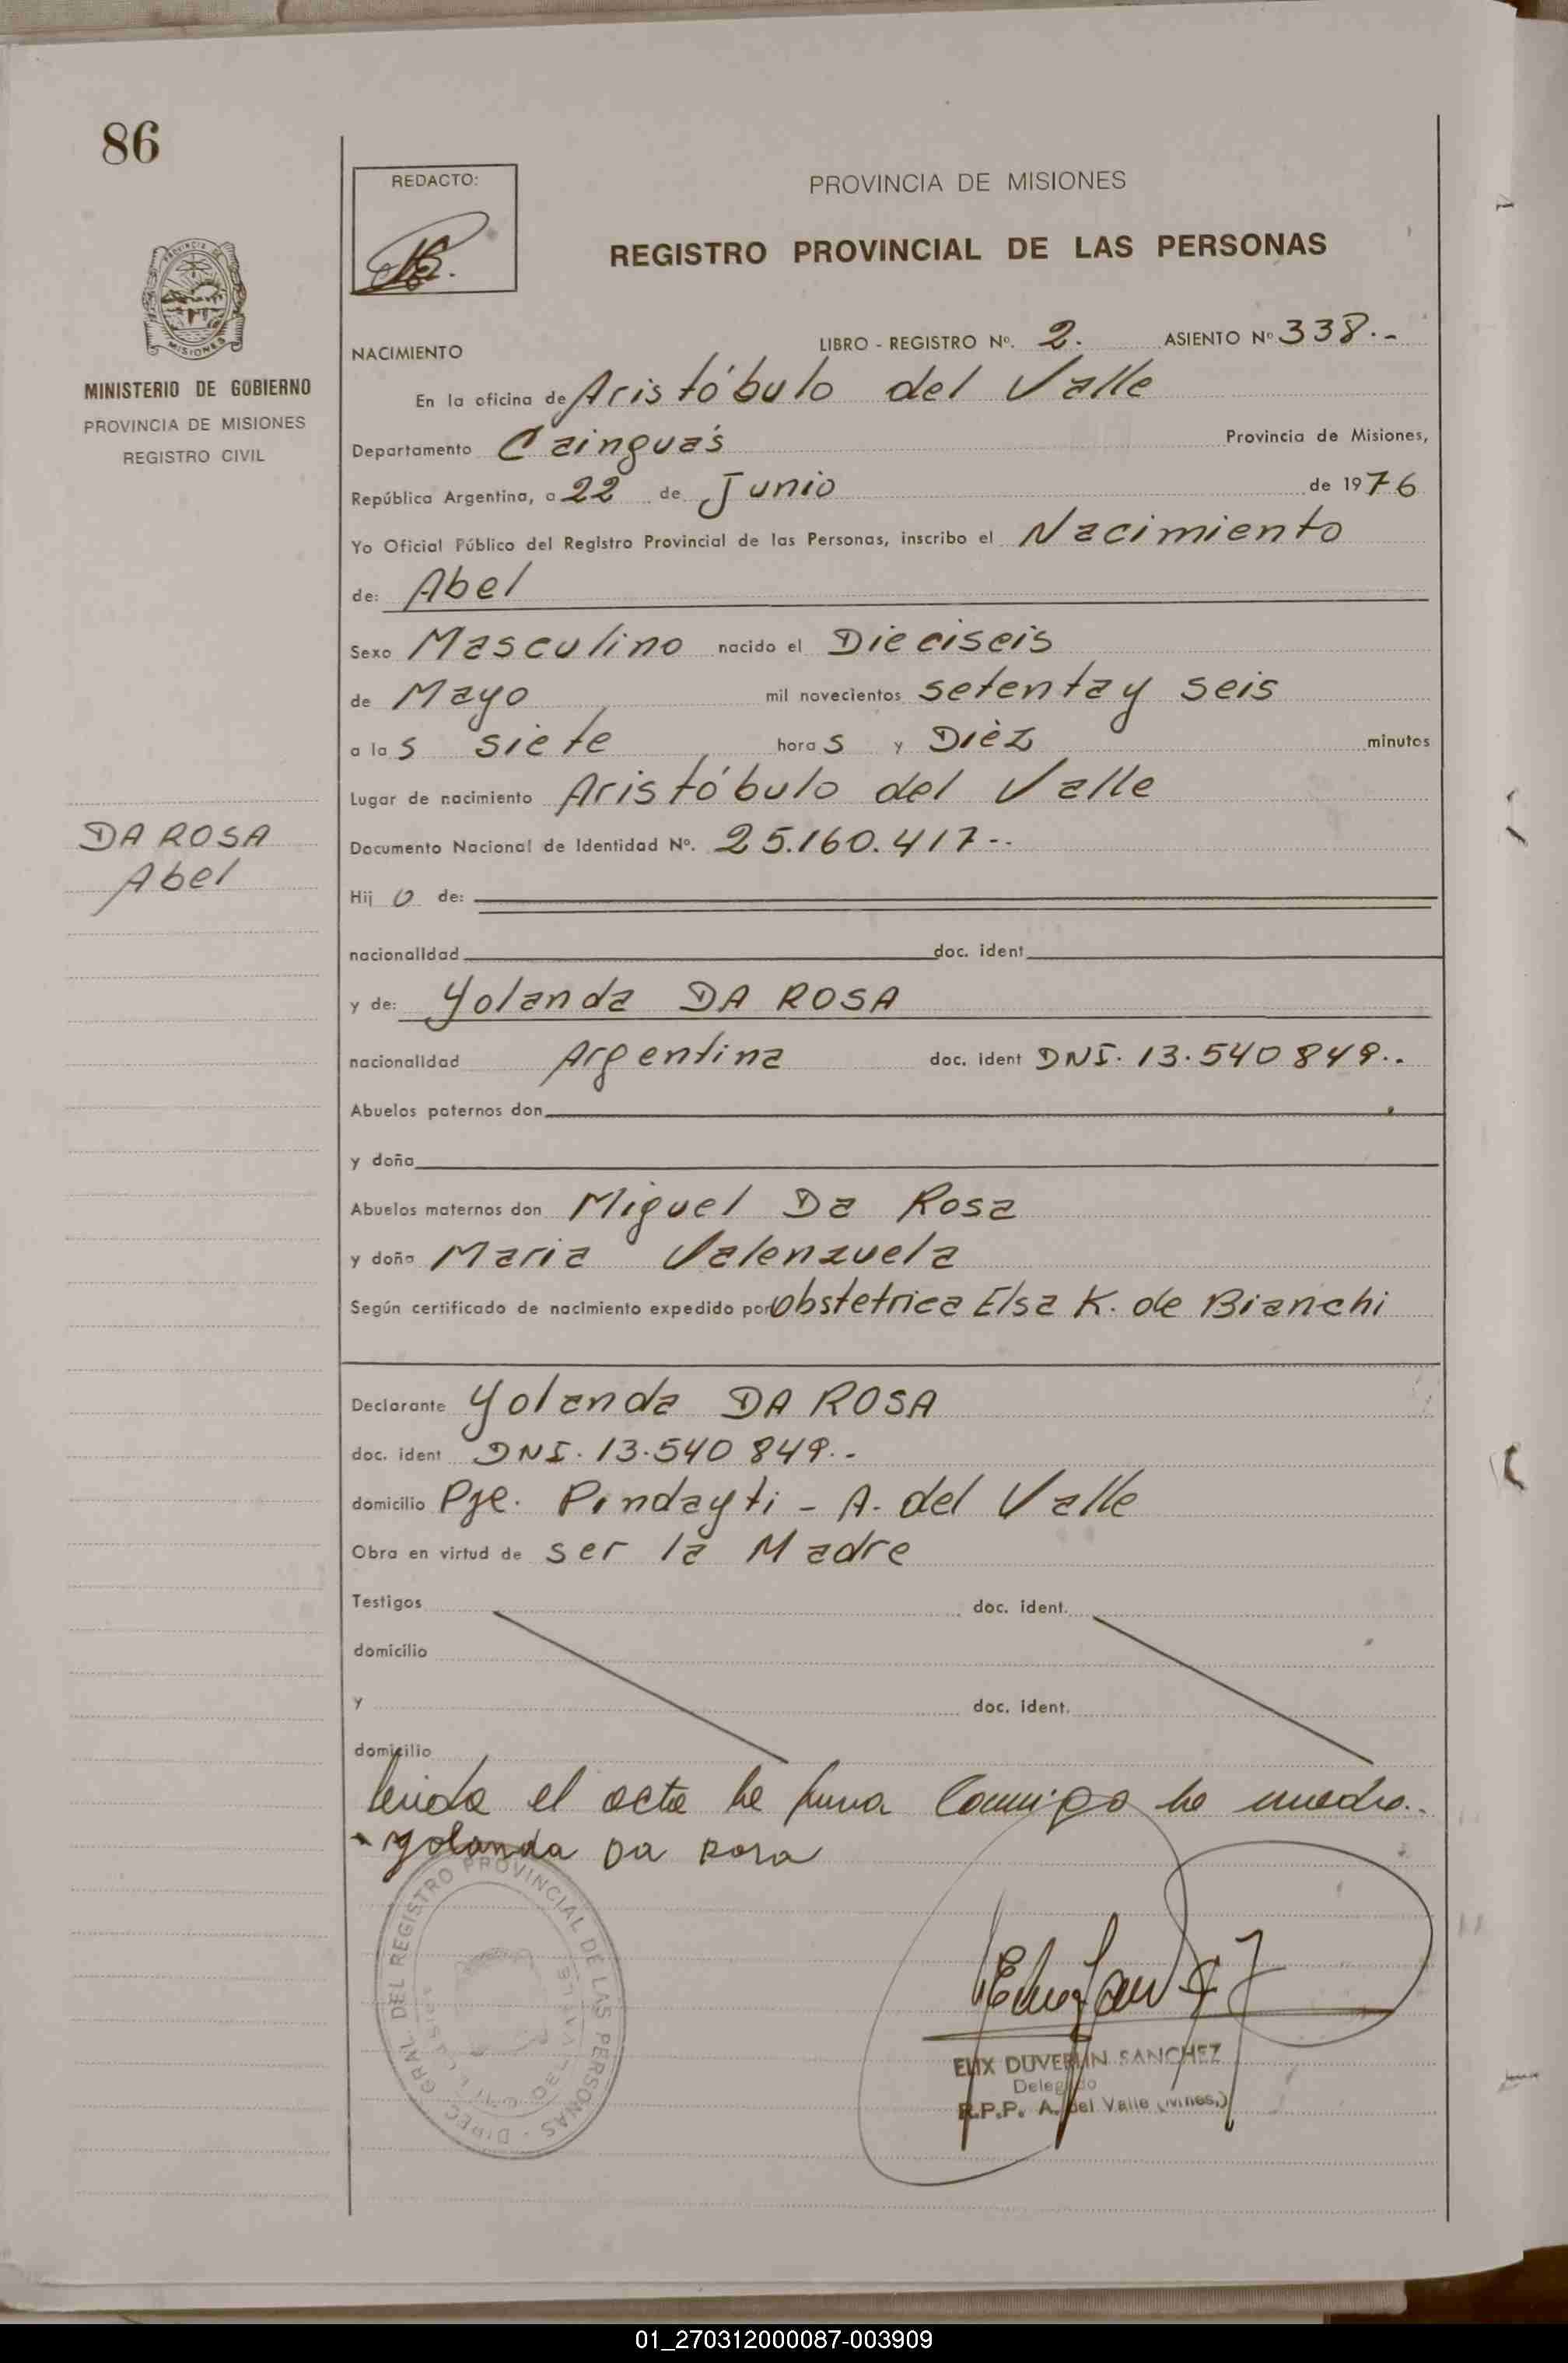 86
REDACTO:
PROVINCIA DE MISIONES
REGISTRO PROVINCIAL DE LAS PERSONAS
MINISTERIO DE GOBIERNO
PROVINCIA DE MISIONES
REGISTRO CIVIL
NACIMIENTO LIBRO - REGISTRO Nº. 2. ASIENTO Nº 338.-
En la oficina de Aristóbulo del Valle
Departamento Cainguás Provincia de Misiones,
República Argentina, a 22 de Junio de 1976
Yo Oficial Público del Registro Provincial de las Personas, inscribo el Nacimiento
de: Abel
Sexo Masculino nacido el Dieciseis
de Mayo mil novecientos setenta y seis
a las siete horas y Dièz minutos
Lugar de nacimiento Aristóbulo del Valle
DA ROSA
Abel
Documento Nacional de Identidad Nº. 25.160.417--
Hijo de:
nacionalidad doc. ident
y de: Yolanda DA ROSA
nacionalidad Argentina doc. ident DNI. 13.540849..
Abuelos paternos don
y doña
Abuelos maternos don Miguel Da Rosa
y doña Maria Valenzuela
Según certificado de nacimiento expedido por Obstetrica Elsa K. de Bianchi
Declarante Yolanda DA ROSA
doc. ident DNI. 13.540849.-
domicilio Pje. Pindayti - A. del Valle
Obra en virtud de ser la Madre
Testigos doc. ident.
domicilio
y doc. ident.
domicilio
leida el acta la firma Conmigo la madre..
Yolanda Da Rosa
DIREC. GRAL. DEL REGISTRO PROVINCIAL DE LAS PERSONAS
DEL VALLE
ELIX DUVERLIN SANCHEZ
Delegado
R.P.P. A. del Valle (Mnes.)
01_270312000087-003909